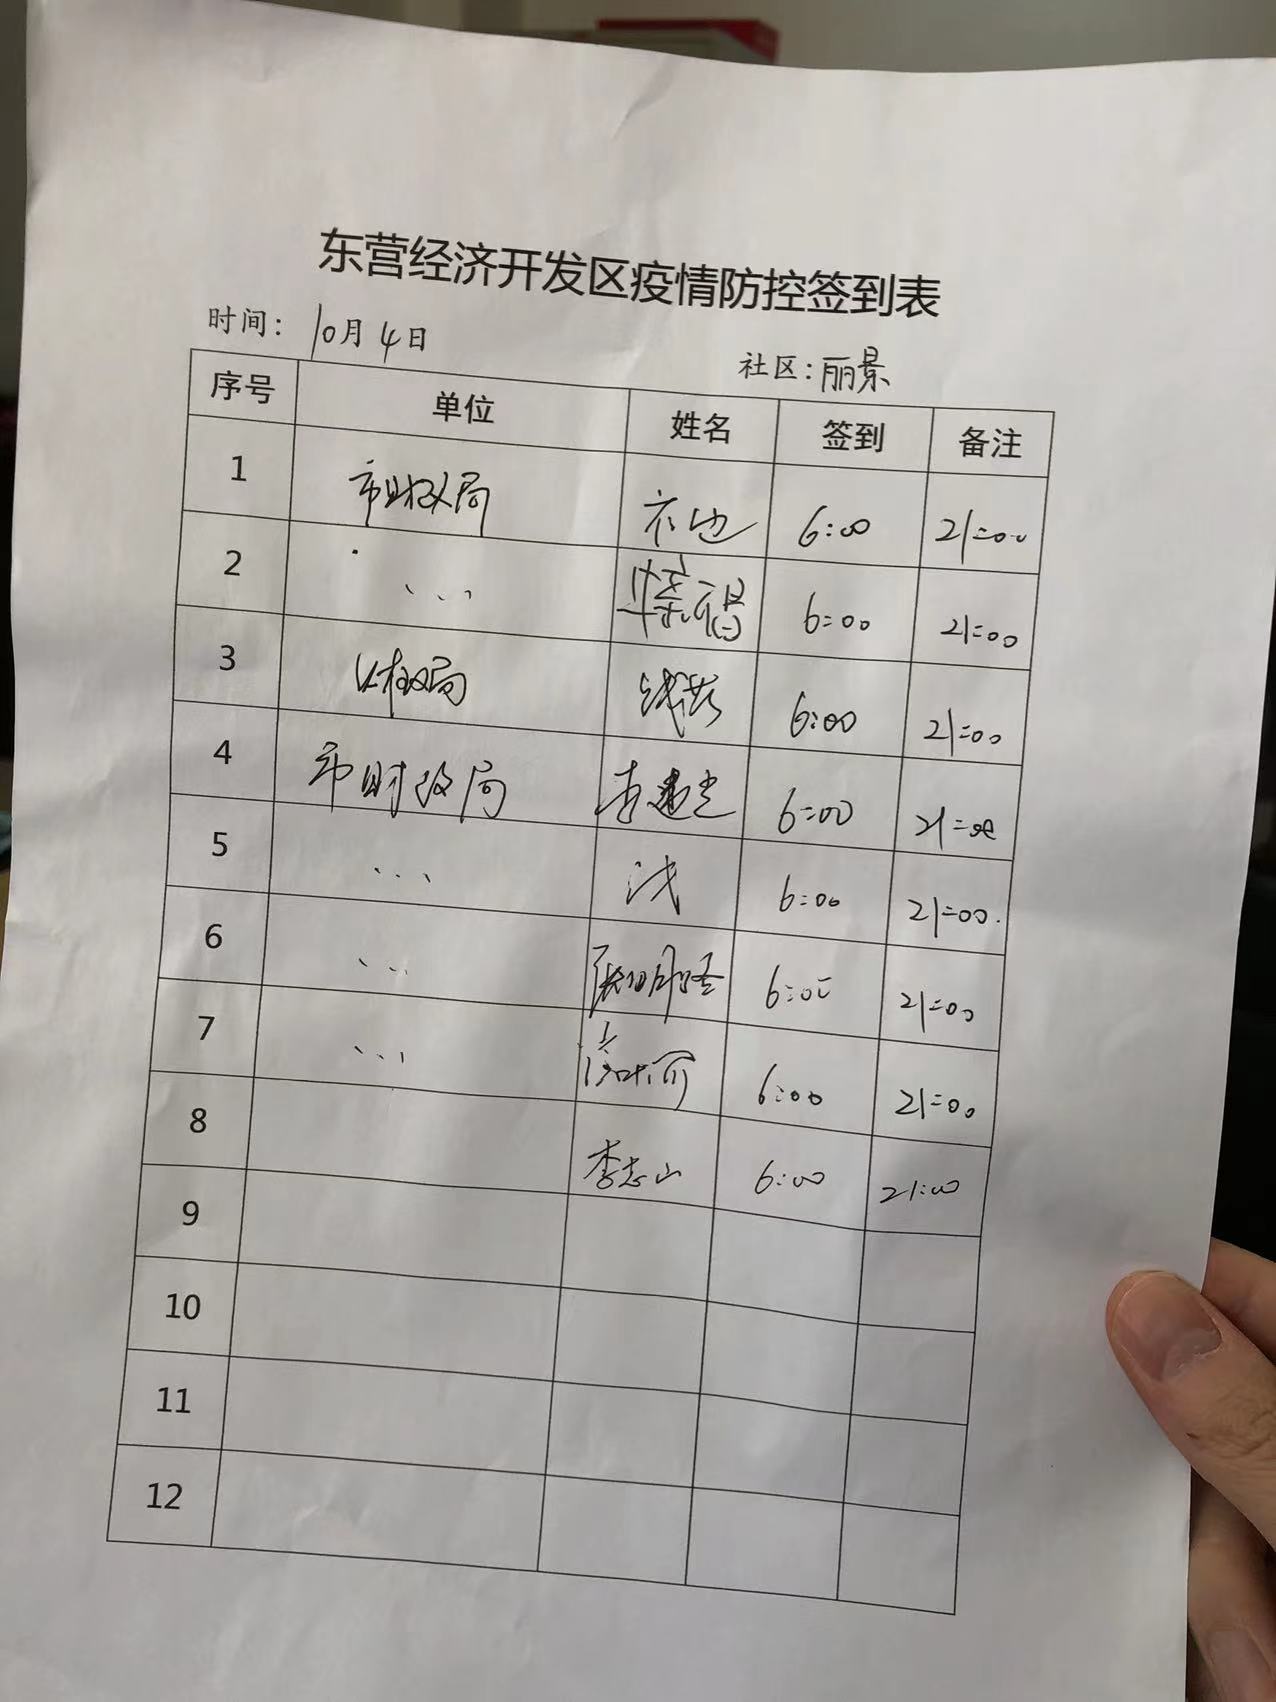 东营经济开发区疫情防控签到表
时间：10月4日
社区：丽景
序号 单位 姓名 签到 备注
1 市财政局 6:00 21:00
2 、、、 6:00 21:00
3 财政局 6:00 21:00
4 市财政局 李建光 6:00 21:00
5 、、、 6:00 21:00
6 、、、 6:00 21:00
7 、、、 6:00 21:00
8 李志山 6:00 21:00
9
10
11
12